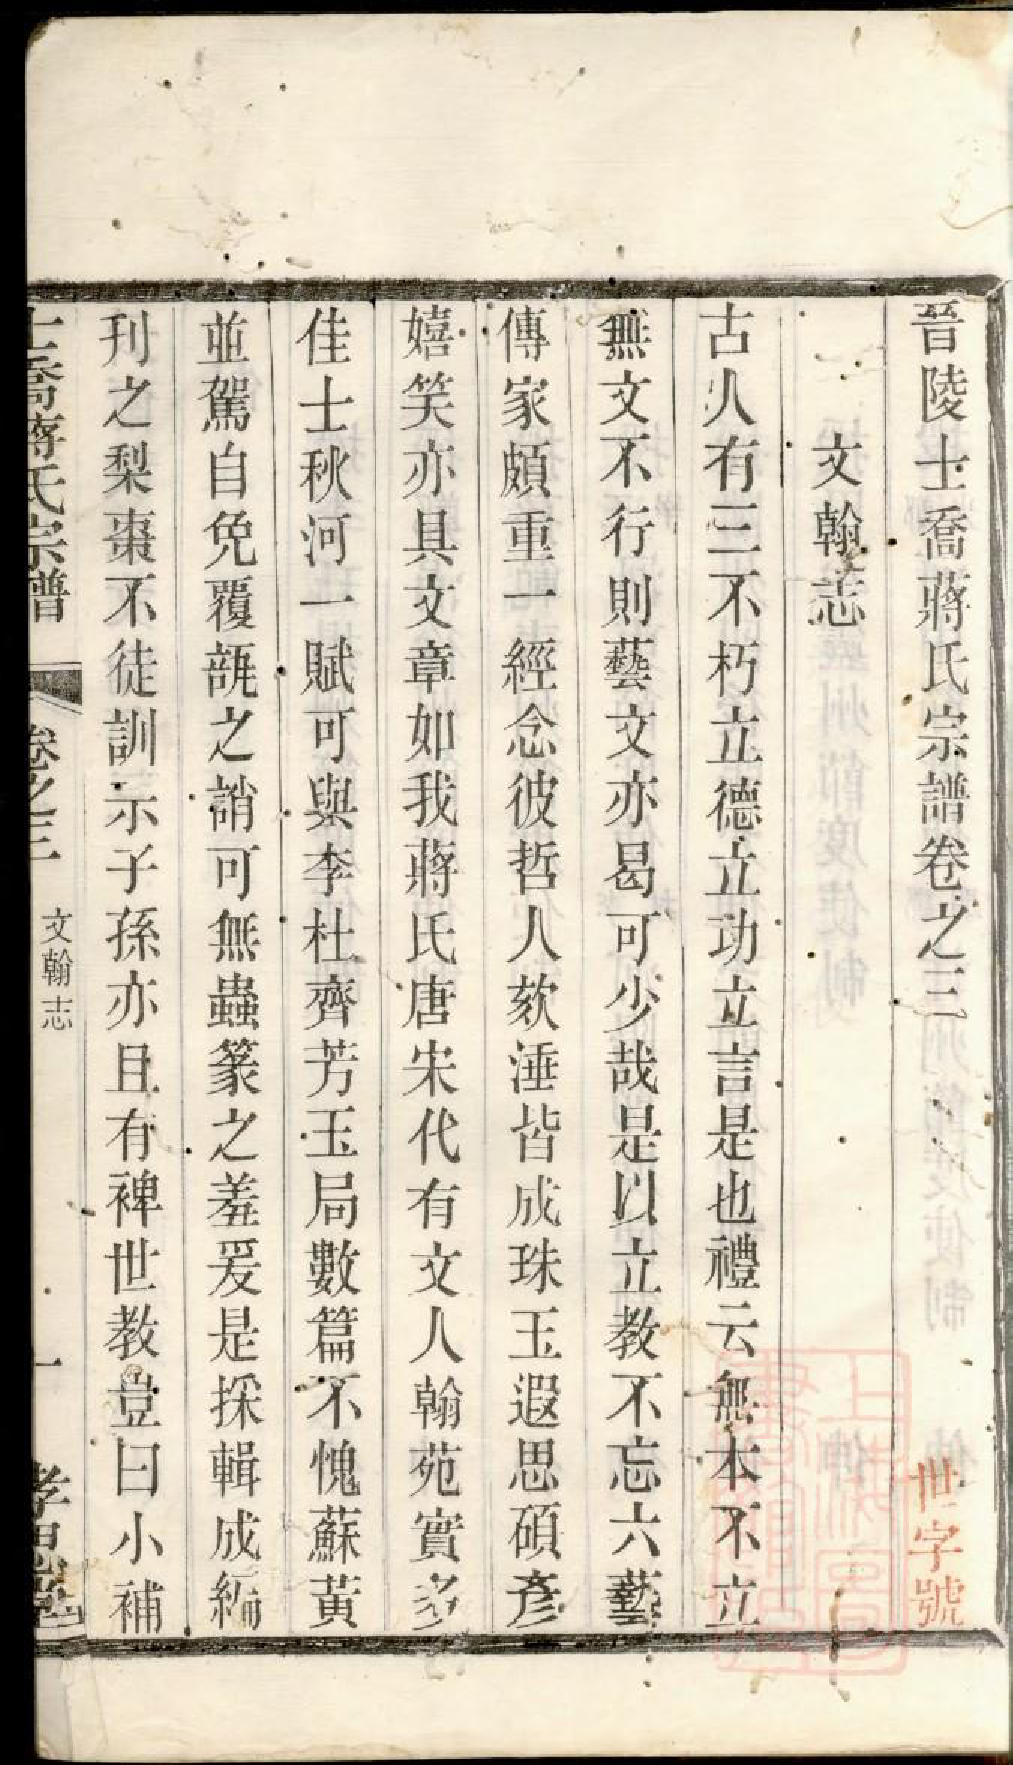 晉陵士喬蔣氏宗譜卷之三
世字號
文翰志
古人有三不朽立德立功立言是也禮云無本不立
無文不行則藝文亦曷可少哉是以立教不忘六藝
傳家頗重一經念彼哲人欬涶皆成珠玉遐思碩彥
嬉笑亦具文章如我蔣氏唐宋代有文人翰苑實多
佳士秋河一賦可與李杜齊芳玉局數篇不愧蘇黃
並駕自免覆瓿之誚可無蟲篆之羞爰是採輯成編
刋之梨棗不徒訓示子孫亦且有裨世教豈曰小補
士喬蔣氏宗譜
卷之三
文翰志
一
孝思堂